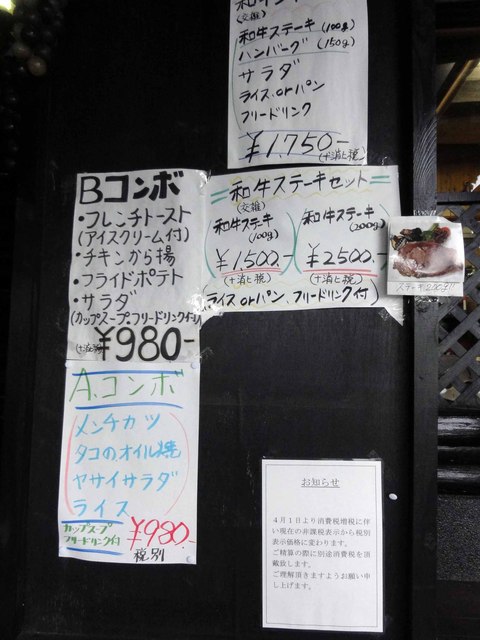 和牛ステーキ
(交雑)
和牛ステーキ(100g)
ハンバーグ(150g)
サラダ
ライス.orパン
フリードリンク
¥1,750-
(+消ヒ税)
Bコンボ
・フレンチトースト
(アイスクリーム付)
・チキンから揚
・フライドポテト
・サラダ
(カップスープ・フリードリンク付)
(+消ヒ税)
¥980-
=和牛ステーキセット=
(交雑)
和牛ステーキ
(100g)
¥1500.-
(+消ヒ税)
和牛ステーキ
(200g)
¥2500.-
(+消ヒ税)
(ライスorパン、フリードリンク付)
ステーキ200g!!
A.コンボ
メンチカツ
タコのオイル焼
ヤサイサラダ
ライス
カップスープ
フリードリンク付
¥980.-
税別
お知らせ
4月1日より消費税増税に伴
い現在の非課税表示から税別
表示価格に変わります。
ご精算の際に別途消費税を頂
戴致します。
ご理解頂きますようお願い申
し上げます。